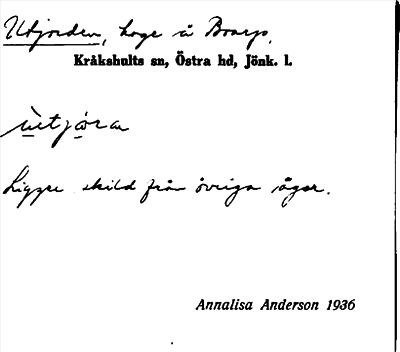 Utjorden, hage å Boarp.
Kråkshults sn, Östra hd, Jönk. l.
ùtjóran
Ligger skild från övriga ägor.
Annalisa Anderson 1936